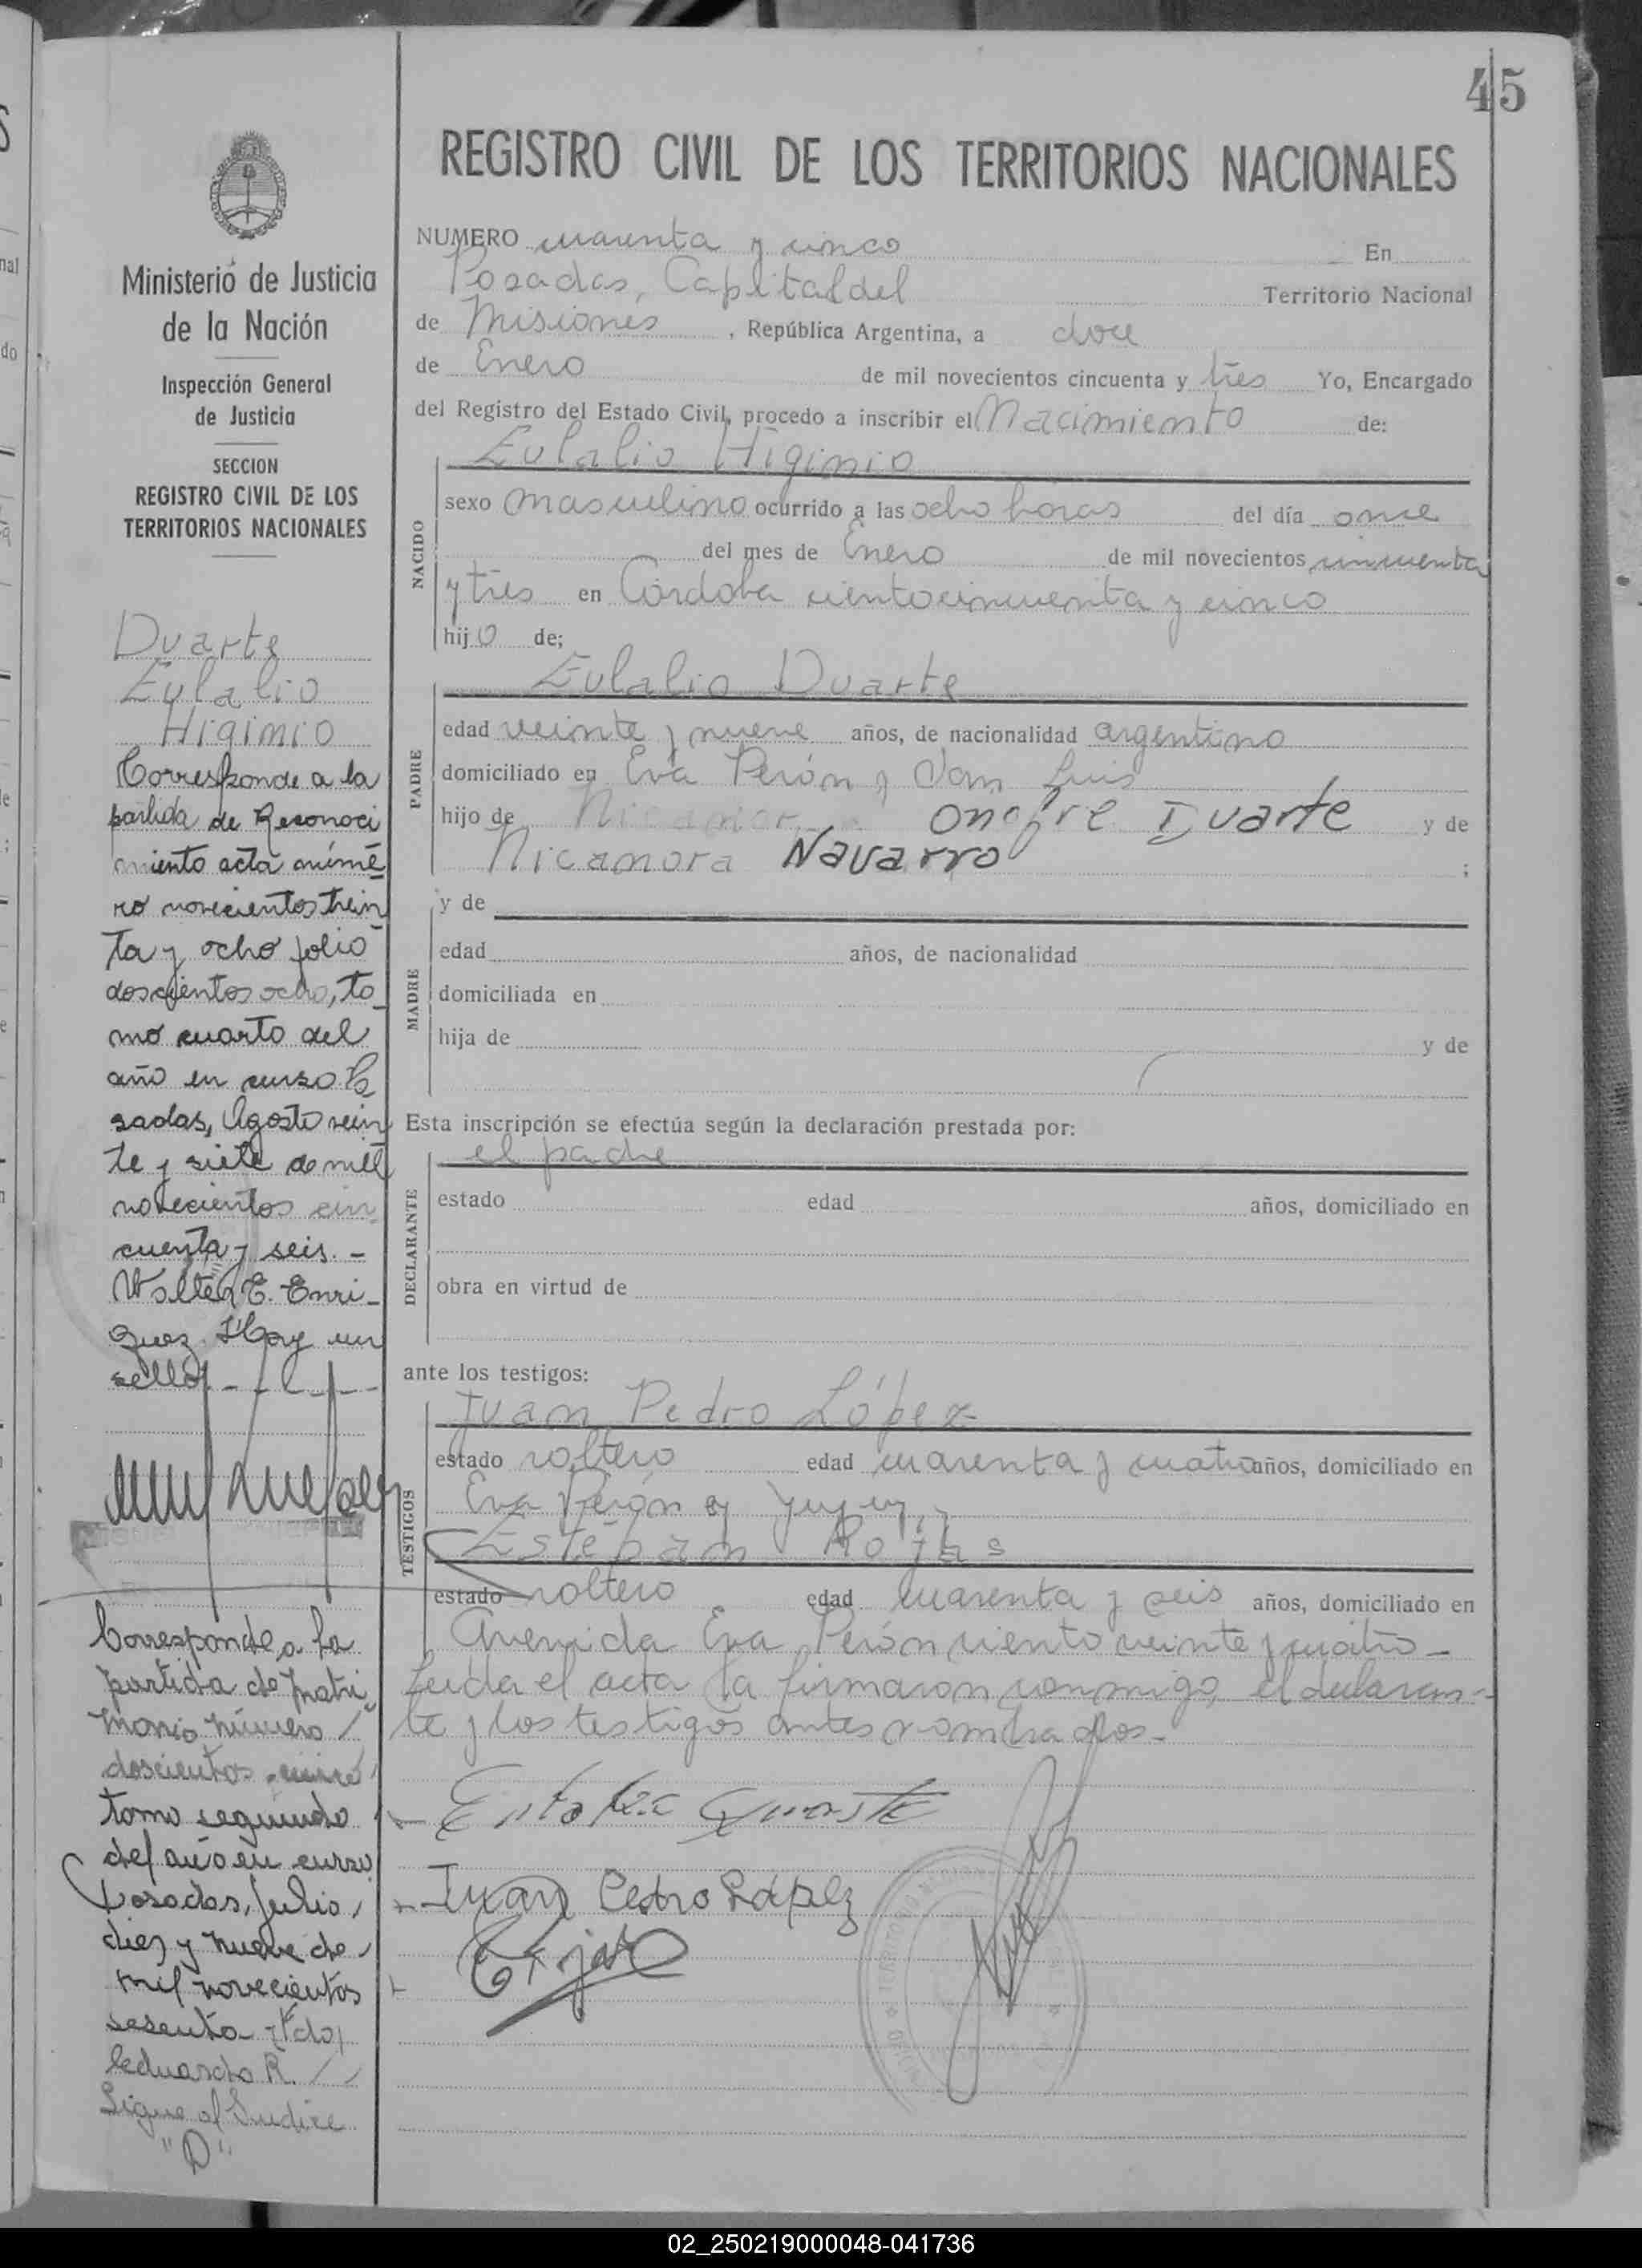 45
REGISTRO CIVIL DE LOS TERRITORIOS NACIONALES
Ministerio de Justicia
de la Nación
Inspección General
de Justicia
SECCION
REGISTRO CIVIL DE LOS
TERRITORIOS NACIONALES
Duarte
Eulalio
Higinio
Corresponde a la
partida de Reconoci
miento acta núme
ro novecientos trein
ta y ocho folio
doscientos ocho, to
mo cuarto del
año en curso Po
sadas, Agosto vein
te y siete de mil
novecientos cin
cuenta y seis. -
Walter E. Enri-
quez. Hay un
sello
Corresponde a la
partida de matri
monio número
doscientos
tomo segundo
del año en curso
Posadas, Julio
diez y nueve de
mil novecientos
sesenta - Fdo
Eduardo R.
Sigue al Indice
"D"
NUMERO cuarenta y cinco En
Posadas, Capital del Territorio Nacional
de Misiones , República Argentina, a doce
de Enero de mil novecientos cincuenta y tres Yo, Encargado
del Registro del Estado Civil, procedo a inscribir el Nacimiento de:
Eulalio Higinio
NACIDO
sexo masculino ocurrido a las ocho horas del día once
del mes de Enero de mil novecientos cincuenta
y tres en Córdoba ciento cincuenta y cinco
hijo de;
Eulalio Duarte
PADRE
edad veinte y nueve años, de nacionalidad argentino
domiciliado en Eva Perón y San Luis
hijo de Nicanor Onofre Duarte y de
Nicanora Navarro ;
MADRE
y de
edad años, de nacionalidad
domiciliada en
hija de y de
Esta inscripción se efectúa según la declaración prestada por:
el padre
DECLARANTE
estado edad años, domiciliado en
obra en virtud de
ante los testigos:
Juan Pedro López
TESTIGOS
estado soltero edad cuarenta y cuatro años, domiciliado en
Eva Perón y Jujuy
Esteban Rojas
estado soltero edad cuarenta y seis años, domiciliado en
Avenida Eva Perón ciento veinte y cuatro -
Leida el acta la firmaron conmigo, el declaran-
te y los testigos antes nombrados.-
Eulalio Duarte
Juan Pedro López
E Rojas
02_250219000048-041736